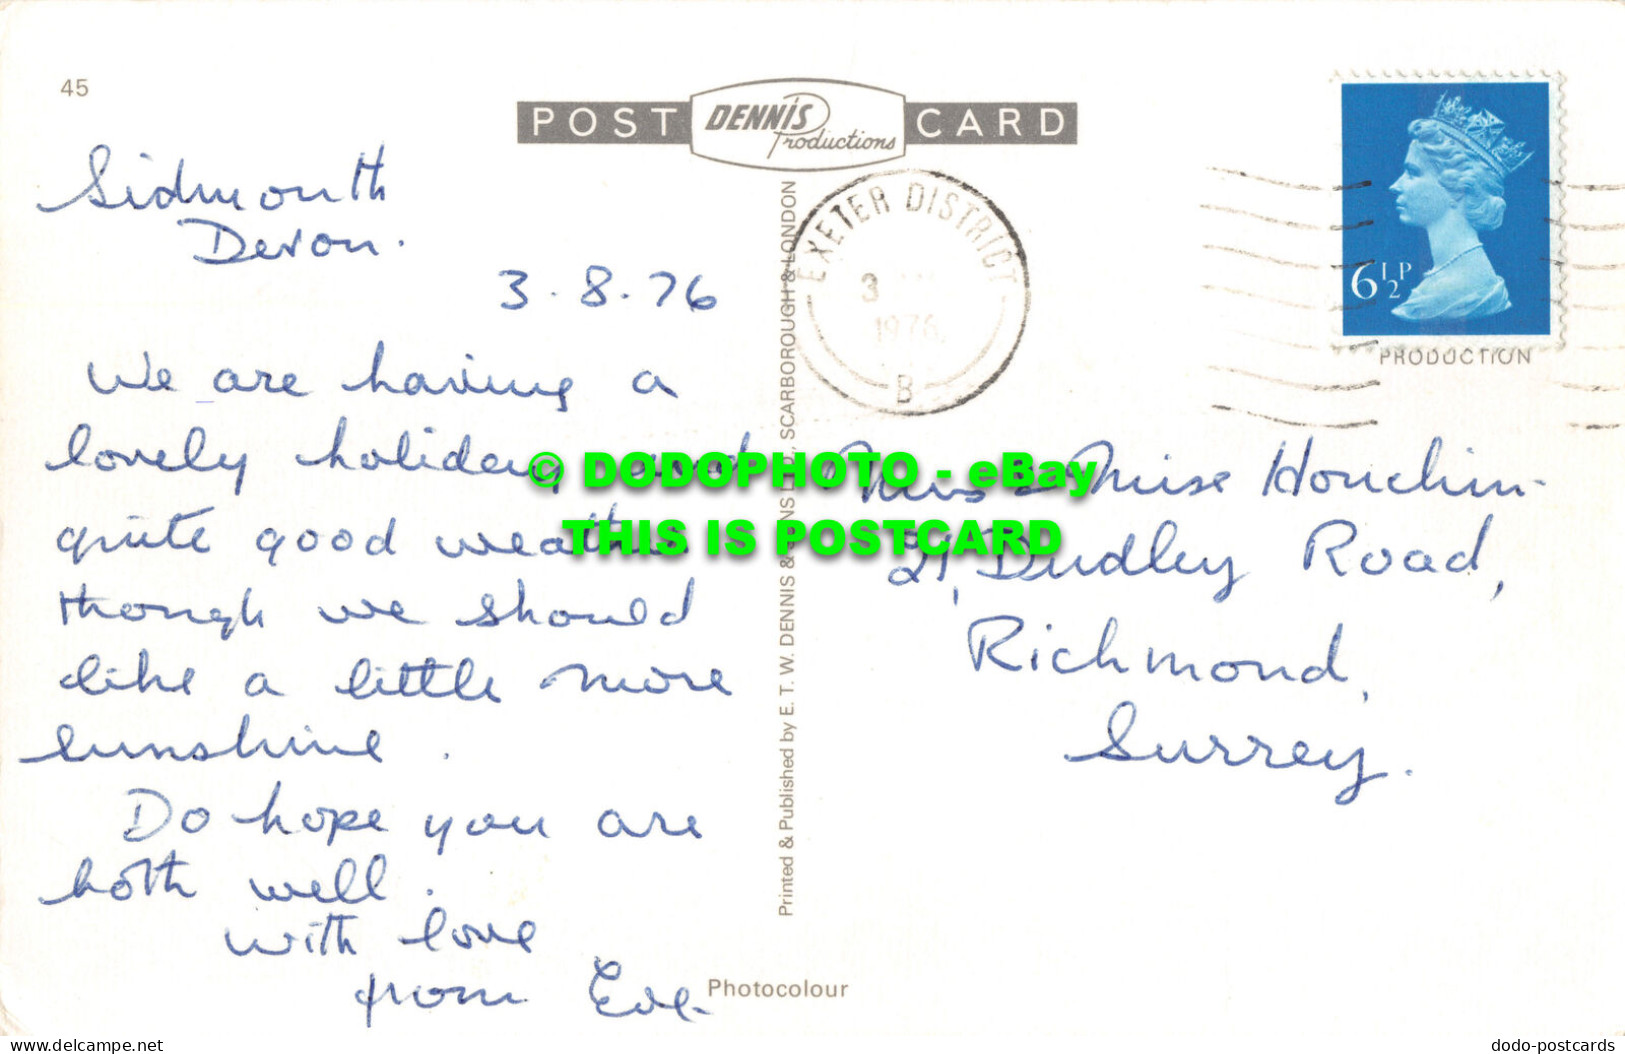 45
POST DENNIS Productions CARD
Sidmouth
Devon.
3.8.76
We are having a
lovely holiday and
quite good weather
though we should
like a little more
sunshine.
Do hope you are
both well.
with love
from Eve.
Photocolour
Printed & Published by E. T. W. DENNIS & SONS LTD., SCARBOROUGH & LONDON
EXETER DISTRICT
3
1976
B
6½P
PRODUCTION
& Miss Houchin.
21, Dudley Road,
Richmond,
Surrey.
© DODOPHOTO - eBay
THIS IS POSTCARD
www.delcampe.net
dodo-postcards